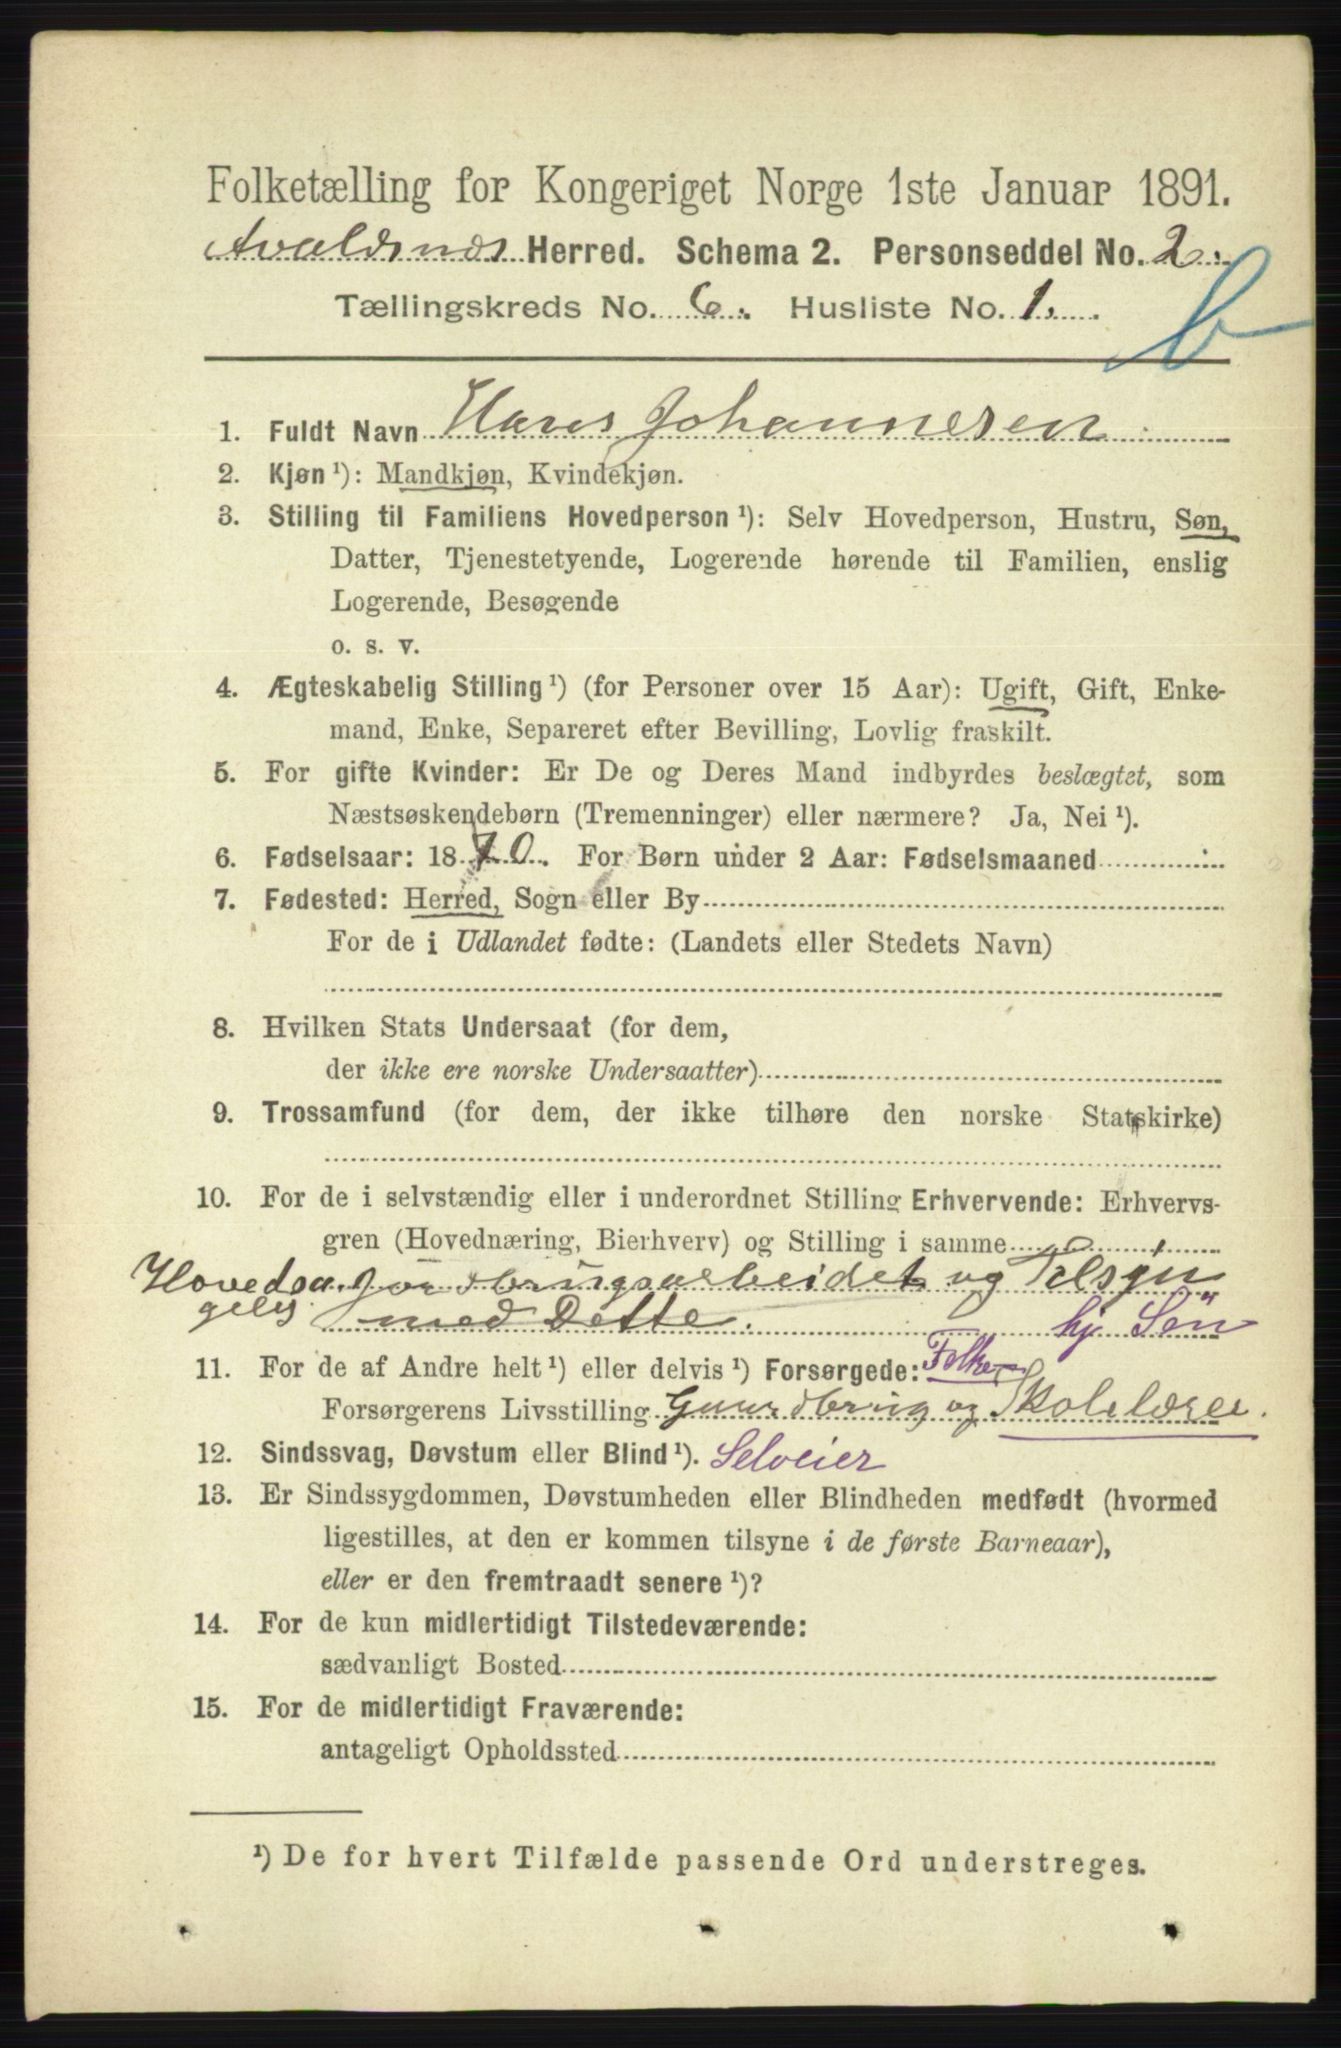 Folketælling for Kongeriget Norge 1ste Januar 1891.
Avaldsnæs Herred. Schema 2. Personseddel No. 2.
Tællingskreds No. 6. Husliste No. 1.
b
1. Fuldt Navn Hans Johannesen
2. Kjøn ¹): Mandkjøn, Kvindekjøn.
3. Stilling til Familiens Hovedperson ¹): Selv Hovedperson, Hustru, Søn,
Datter, Tjenestetyende, Logerende hørende til Familien, enslig
Logerende, Besøgende
o. s. v.
4. Ægteskabelig Stilling ¹) (for Personer over 15 Aar): Ugift, Gift, Enke-
mand, Enke, Separeret efter Bevilling, Lovlig fraskilt.
5. For gifte Kvinder: Er De og Deres Mand indbyrdes beslægtet, som
Næstsøskendebørn (Tremenninger) eller nærmere? Ja, Nei ¹).
6. Fødselsaar: 1870. For Børn under 2 Aar: Fødselsmaaned
7. Fødested: Herred, Sogn eller By
For de i Udlandet fødte: (Landets eller Stedets Navn)
8. Hvilken Stats Undersaat (for dem,
der ikke ere norske Undersaatter)
9. Trossamfund (for dem, der ikke tilhøre den norske Statskirke)
10. For de i selvstændig eller i underordnet Stilling Erhvervende: Erhvervs-
gren (Hovednæring, Bierhverv) og Stilling i samme
Hovedsa. Jordbrugsarbeidet og Tilsyn
gelig med Dette. hj. Søn
11. For de af Andre helt ¹) eller delvis ¹) Forsørgede: Folke-
Forsørgerens Livsstilling Gaardbrug og Skolelærer.
12. Sindssvag, Døvstum eller Blind ¹). Selveier
13. Er Sindssygdommen, Døvstumheden eller Blindheden medfødt (hvormed
ligestilles, at den er kommen tilsyne i de første Barneaar),
eller er den fremtraadt senere ¹)?
14. For de kun midlertidigt Tilstedeværende:
sædvanligt Bosted
15. For de midlertidigt Fraværende:
antageligt Opholdssted
¹) De for hvert Tilfælde passende Ord understreges.